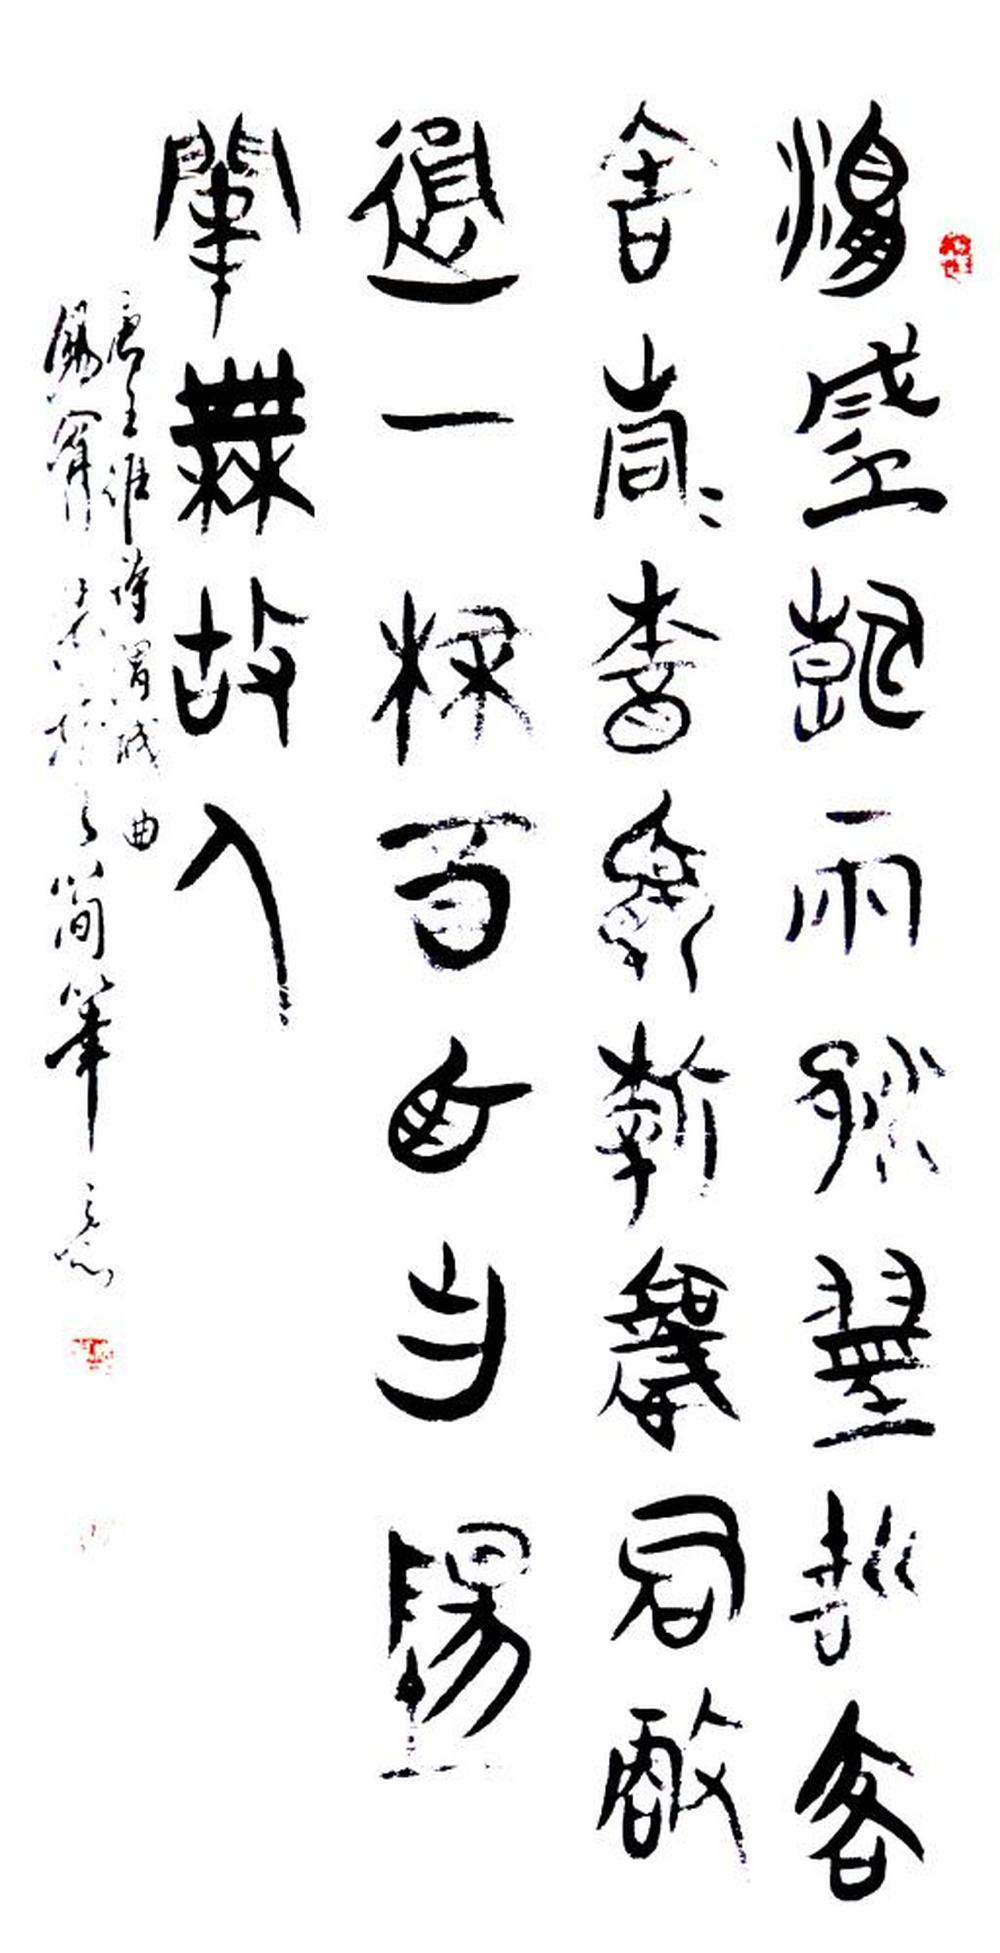 渭城朝雨浥輕塵客
舍青〻柳色新勸君更
盡一杯酒西出陽
關無故人
唐王維詩渭城曲
簡筆意